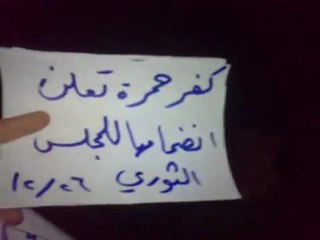 كفر حمرة تعلن
انضمامها للمجلس
الثوري ١٢/٢٦